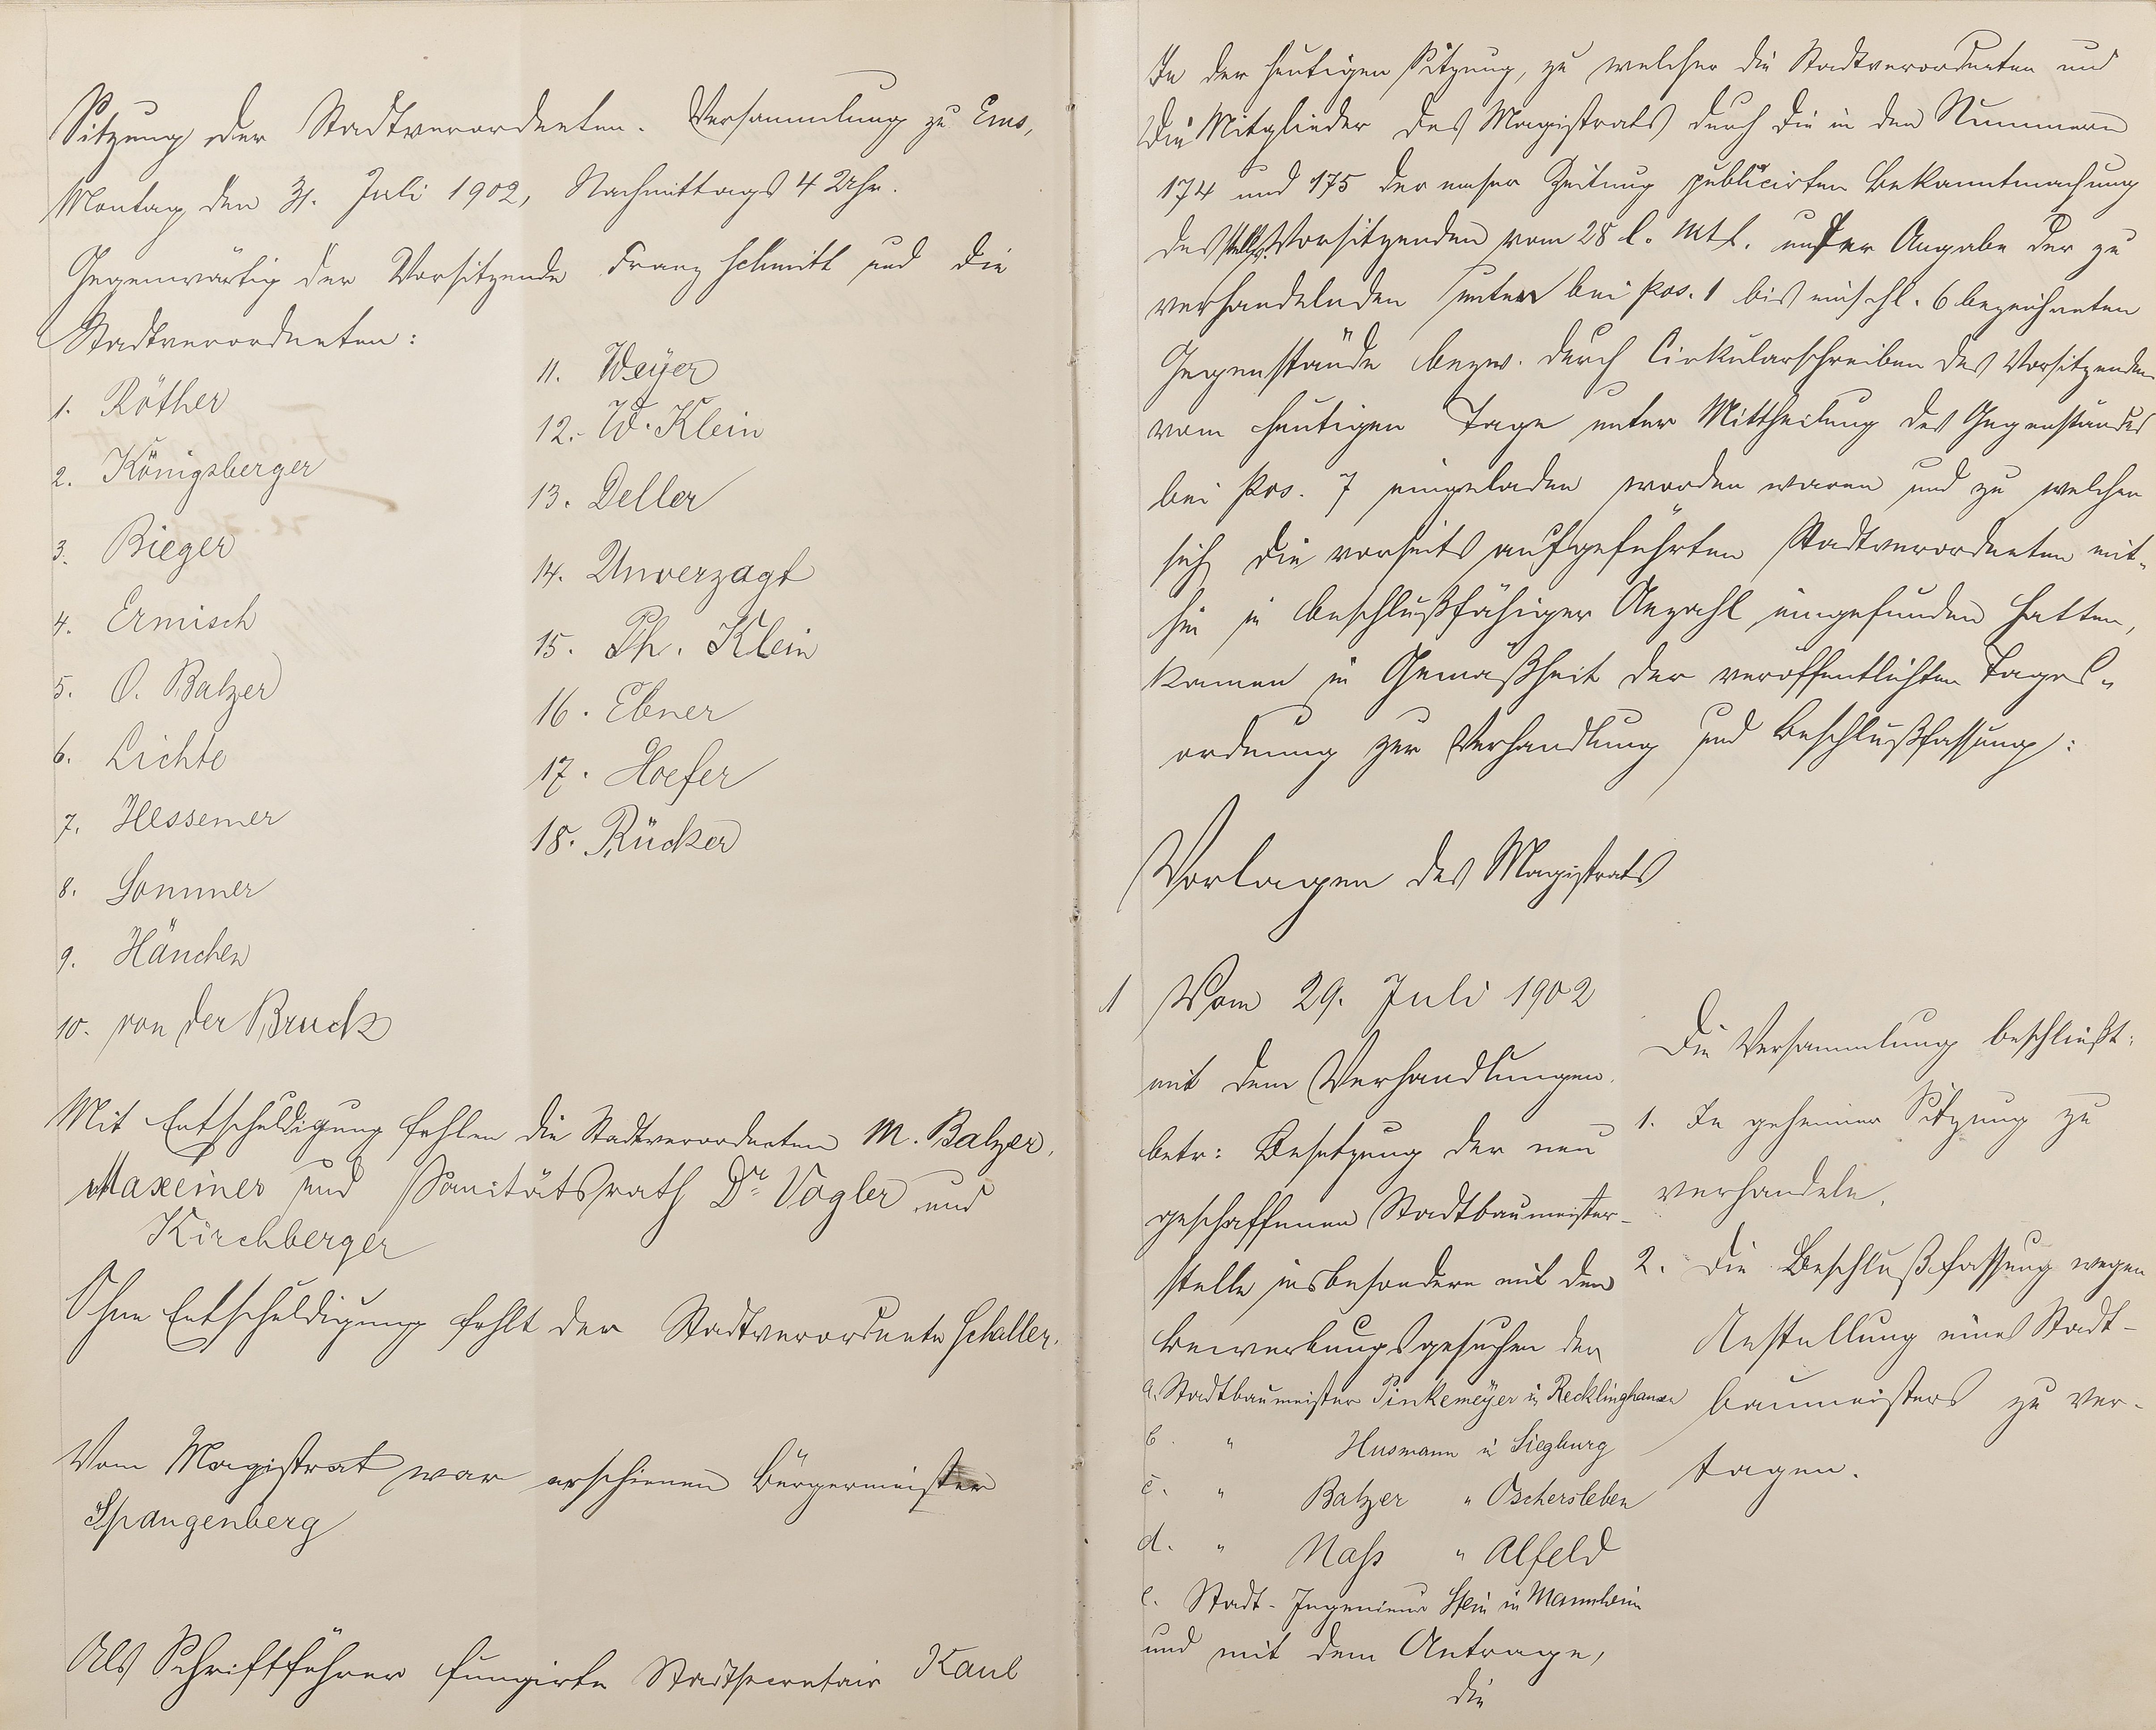 Sitzung der Stadtverordneten-Versammlung zu Ems,
Montag den 31. Juli 1902, Nachmittags 4 Uhr.
Gegenwärtig der Vorsitzende Franz Schmitt und die
Stadtverordneten:
1. Röther
2. Königsberger
3. Bieger
4. Ermisch
5. O. Balzer
6. Lichte
7. Hessemer
8. Sommer
9. Hänchen
10. von der Bruck
11. Weyer
12. W. Klein
13. Deller
14. Unverzagt
15. Ph. Klein
16. Ebner
17. Hoefer
18. Rücker
Mit Entschuldigung fehlen die Stadtverordneten M. Balzer,
Maxeiner und Sanitätsrath Dr. Vogler und
Kirchberger
Ohne Entschuldigung fehlt der Stadtverordnete Schaller.
Vom Magistrat war erschienen Bürgermeister
Spangenberg
Als Schriftführer fungirte Stadtsecretair Kaul
In der heutigen Sitzung, zu welcher die Stadtverordneten und
die Mitglieder des Magistrats durch die in den Nummern
174 und 175 der emser Zeitung publicirten Bekanntmachung
des stellv. Vorsitzenden vom 28 l. Mts. unter Angabe der zu
verhandelnden unten bei pos. 1 bis einschl. 6 bezeichneten
Gegenstände bezw. durch Cirkularschreiben des Vorsitzenden
vom heutigen Tage unter Mittheilung des Gegenstandes
bei Pos. 7 eingeladen worden waren und zu welcher
sich die vorseits aufgeführten Stadtverordneten mit-
hin in beschlußfähiger Anzahl eingefunden hatten,
kamen in Gemäßheit der veröffentlichten Tages-
ordnung zur Verhandlung und Beschlußfassung:
Vorlagen des Magistrats
1 Vom 29. Juli 1902
mit den Verhandlungen
betr: Besetzung der neu
geschaffenen Stadtbaumeister-
stelle insbesondere mit den
Bewerbungsgesuchen der
a. Stadtbaumeister Pinkemeyer in Recklinghausen
b. " Husmann in Siegburg
c. " Balzer " Oschersleben
d. " Nass " Alfeld
e. Stadt-Ingenieur Stein in Mannheim
und mit dem Antrage,
die
Die Versammlung beschließt:
1. In geheimer Sitzung zu
verhandeln.
2. Die Beschlußfassung wegen
Anstellung eines Stadt-
baumeisters zu ver-
tagen.